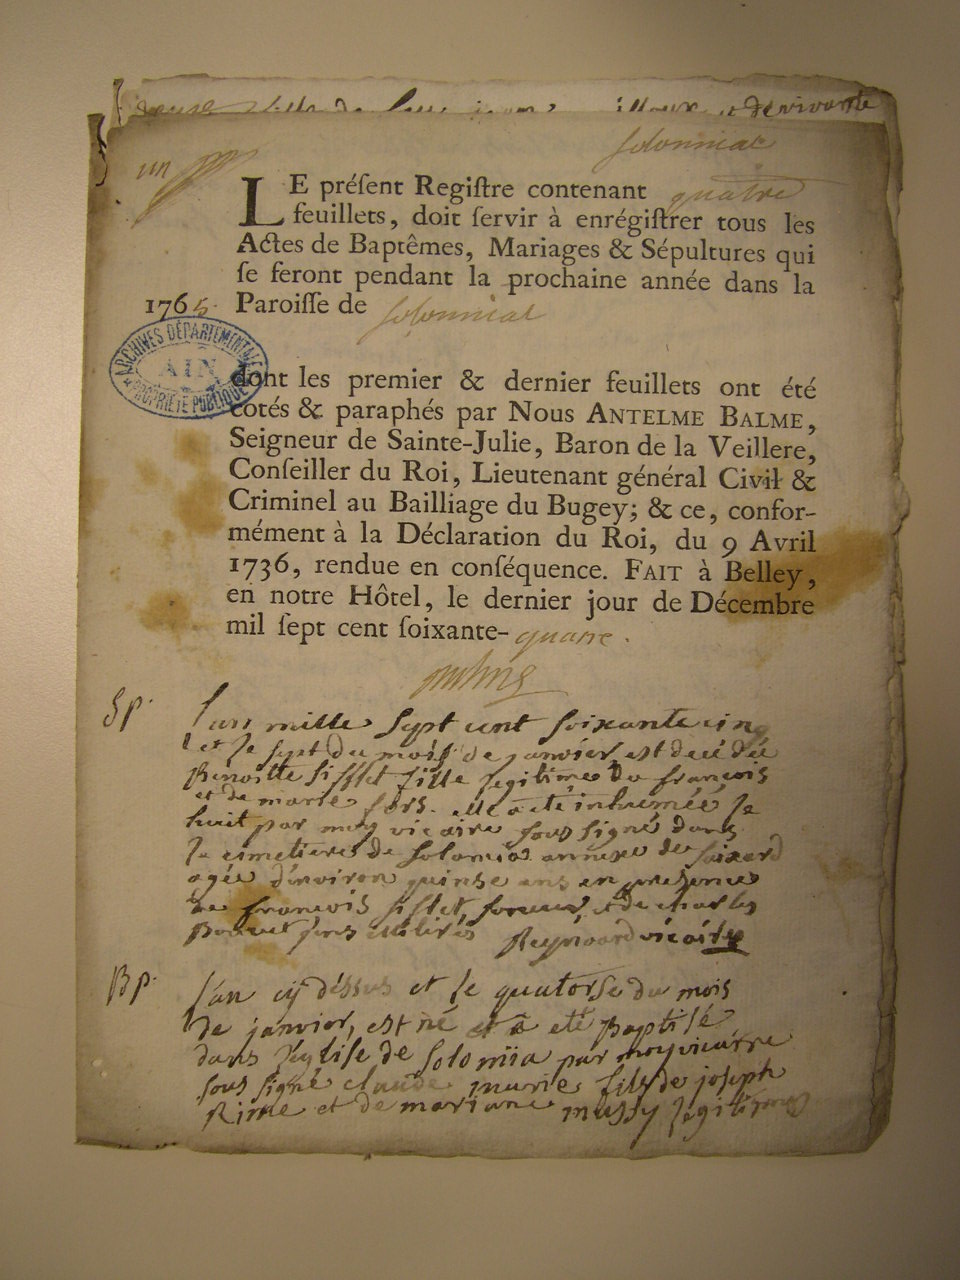 de vivante
Solonniat
un
LE préſent Regiſtre contenant quatre
feuillets, doit ſervir à enrégiſtrer tous les
Actes de Baptêmes, Mariages & Sépultures qui
ſe feront pendant la prochaine année dans la
1765. Paroiſſe de Solonniat
ARCHIVES DÉPARTEMENTALES
AIN
PROPRIÉTÉ PUBLIQUE
dont les premier & dernier feuillets ont été
cotés & paraphés par Nous ANTELME BALME,
Seigneur de Sainte-Julie, Baron de la Veillere,
Conſeiller du Roi, Lieutenant général Civil &
Criminel au Bailliage du Bugey; & ce, confor-
mément à la Déclaration du Roi, du 9 Avril
1736, rendue en conſéquence. FAIT à Belley,
en notre Hôtel, le dernier jour de Décembre
mil ſept cent ſoixante-quatre.
Sp. l'an mille sept cent soixante cinq
et le sept du mois de janvier est decédée
Benoitte sifflet fille legitime de francois
et de marie fors. elle a été inhumée le
huit par moy vicaire sous signé dans
le cimetiere de solomia annexe de
agée d'environ quinse ans en presence
de francois siflet, et de charles
illitérés Reynaord vicaire
Bp. l'an cy déssus et le quatorse du mois
de janvier, est né et a eté Baptisé
dans l'eglise de solomia par moy vicaire
sous signé claude marie fils de joseph
Rime et de mariane mussy legitimes